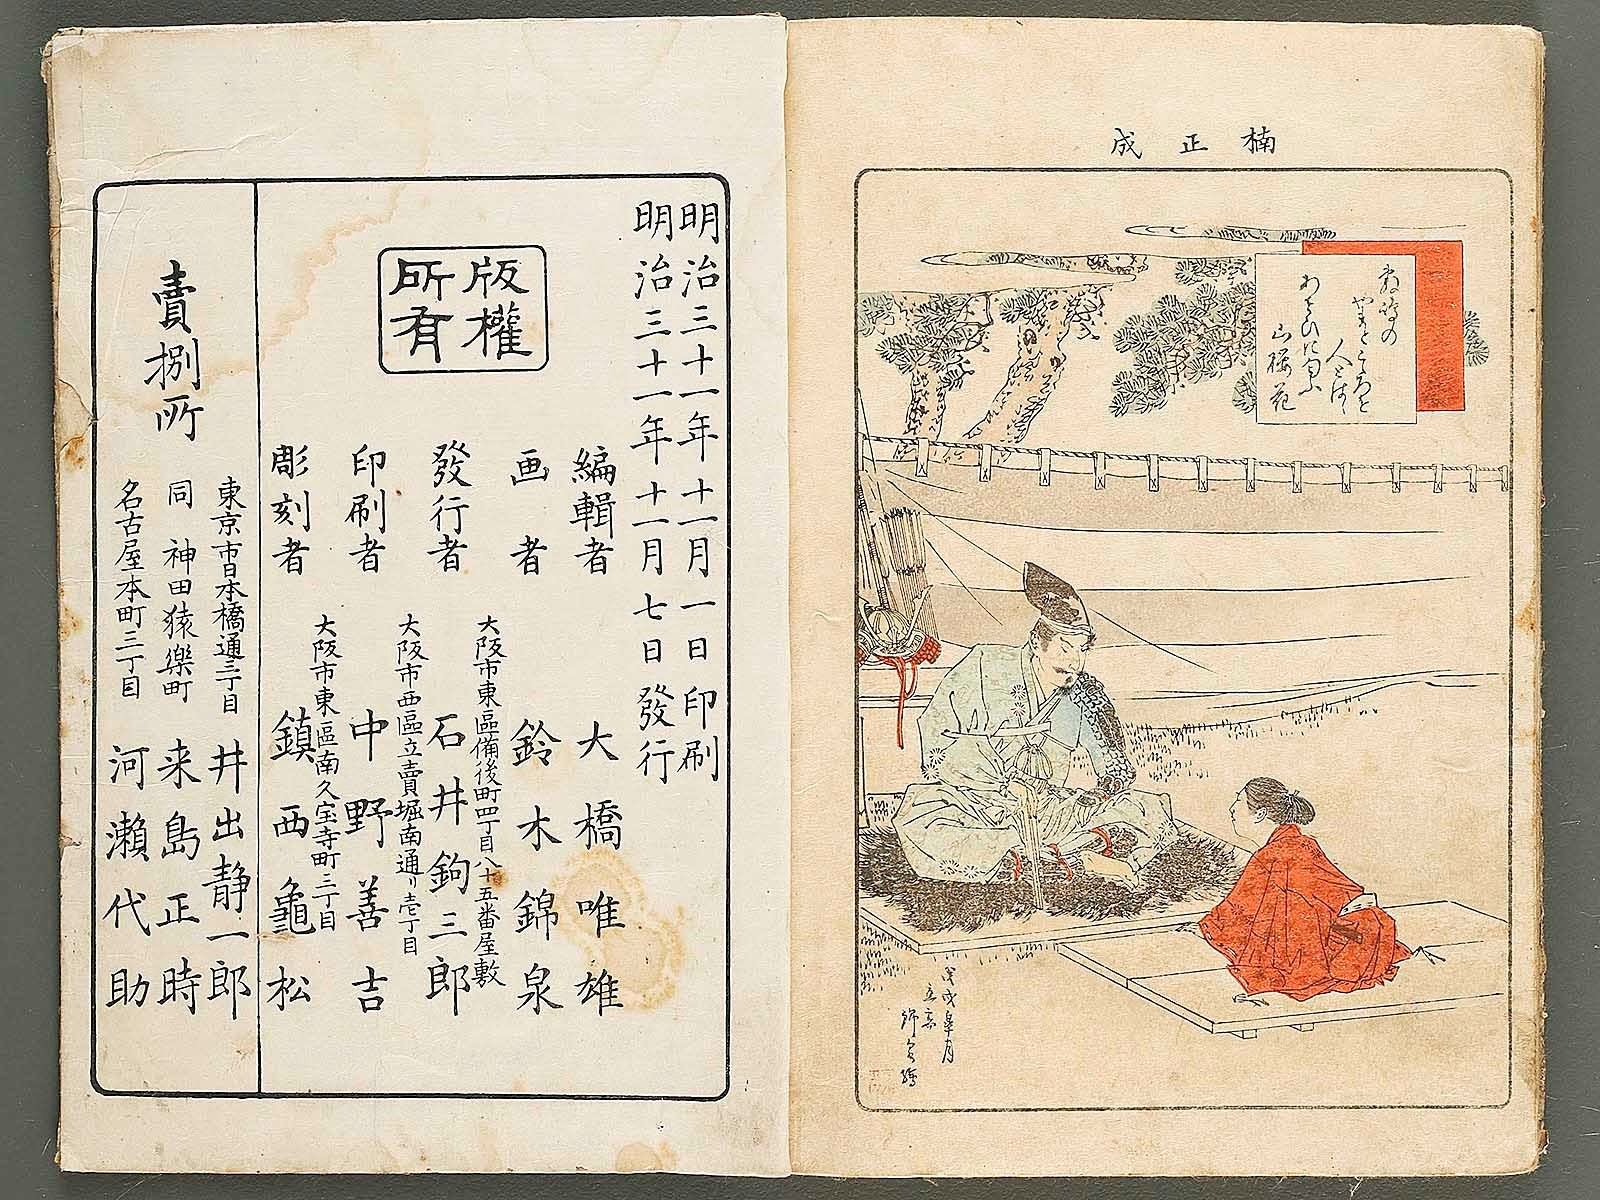 楠正成
敷島の
やまとこゝろを
人とはゝ
山桜花
明治三十一年十一月一日印刷
明治三十一年十一月七日發行
版權
所有
編輯者 大橋唯雄
画者 鈴木錦泉
大阪市東區備後町四丁目八十五番屋敷
發行者 石井鉤三郎
大阪市西區立賣堀南通リ壱丁目
印刷者 中野善吉
大阪市東區南久宝寺町三丁目
彫刻者 鎮西龜松
賣捌所
東京市日本橋通三丁目 井出静一郎
同 神田猿樂町 来島正時
名古屋本町三丁目 河瀬代助